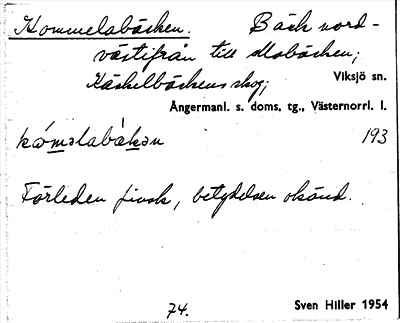 Kommelabäcken. Bäck nord-
västifrån till Mobäcken;
Käckelbäckens skog; Viksjö sn.
Ångermanl. s. doms. tg., Västernorrl. l.
kómǝlabàkǝn 193
Förleden finsk, betydelsen okänd.
74. Sven Hiller 1954